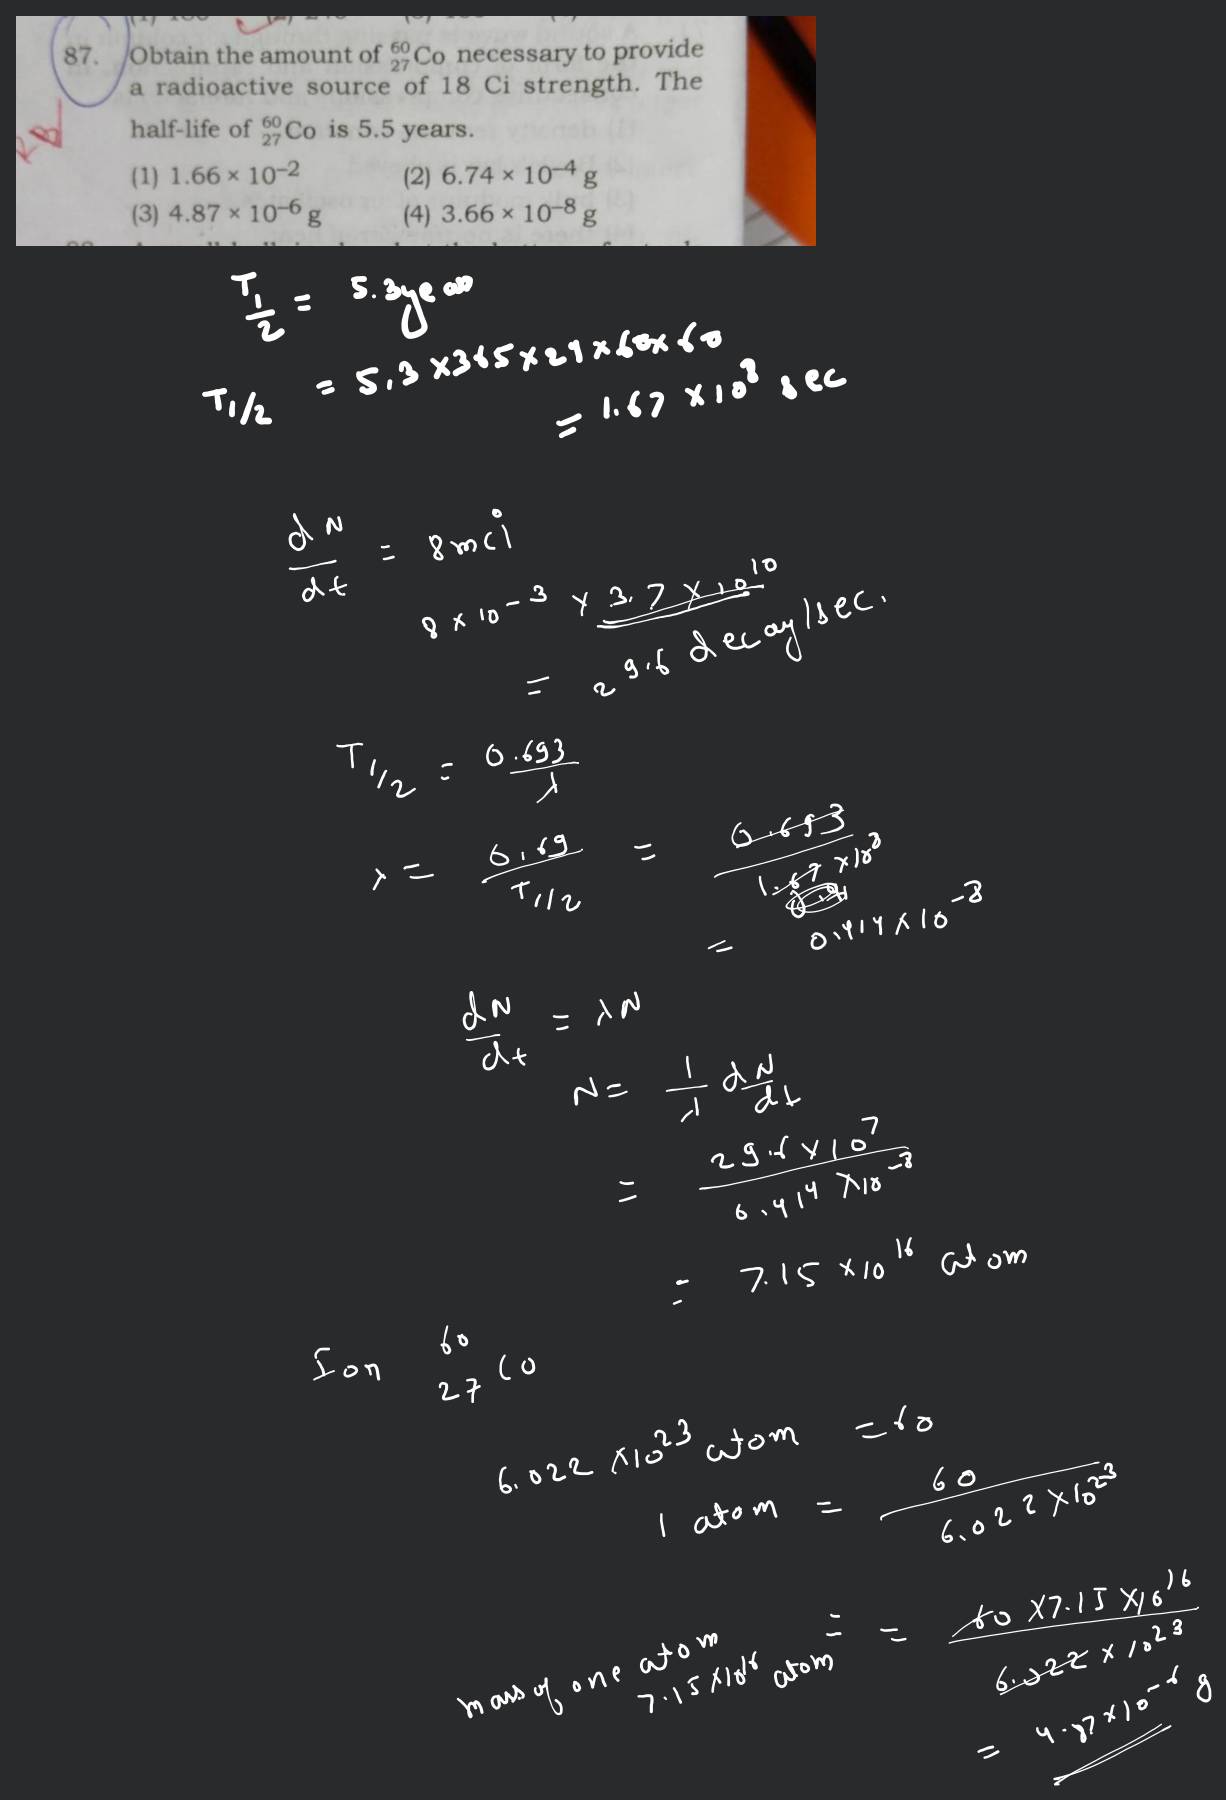 87. Obtain the amount of ⁶⁰₂₇Co necessary to provide
a radioactive source of 18 Ci strength. The
half-life of ⁶⁰₂₇Co is 5.5 years.
(1) 1.66 × 10⁻² (2) 6.74 × 10⁻⁴ g
(3) 4.87 × 10⁻⁶ g (4) 3.66 × 10⁻⁸ g
T 1/2 = 5.3 year
T1/2 = 5.3 × 365 × 24 × 60 × 60
= 1.67 × 10⁸ sec
dN/dt = 8mci
8 × 10⁻³ × 3.7 × 10¹⁰
= 29.6 decay/sec.
T1/2 = 0.693/λ
λ = 0.69/T1/2 = 0.693/1.67 × 10⁸
= 0.414 × 10⁻⁸
dN/dt = λN
N = 1/λ dN/dt
= 29.6 × 10⁷/0.414 × 10⁻⁸
= 7.15 × 10¹⁶ atom
Ion ⁶⁰₂₇Co
6.022 × 10²³ atom = 60
1 atom = 60/6.022 × 10²³
mass of one atom
7.15 × 10¹⁶ atom = = 60 × 7.15 × 10¹⁶/6.022 × 10²³
= 4.87 × 10⁻⁶ g